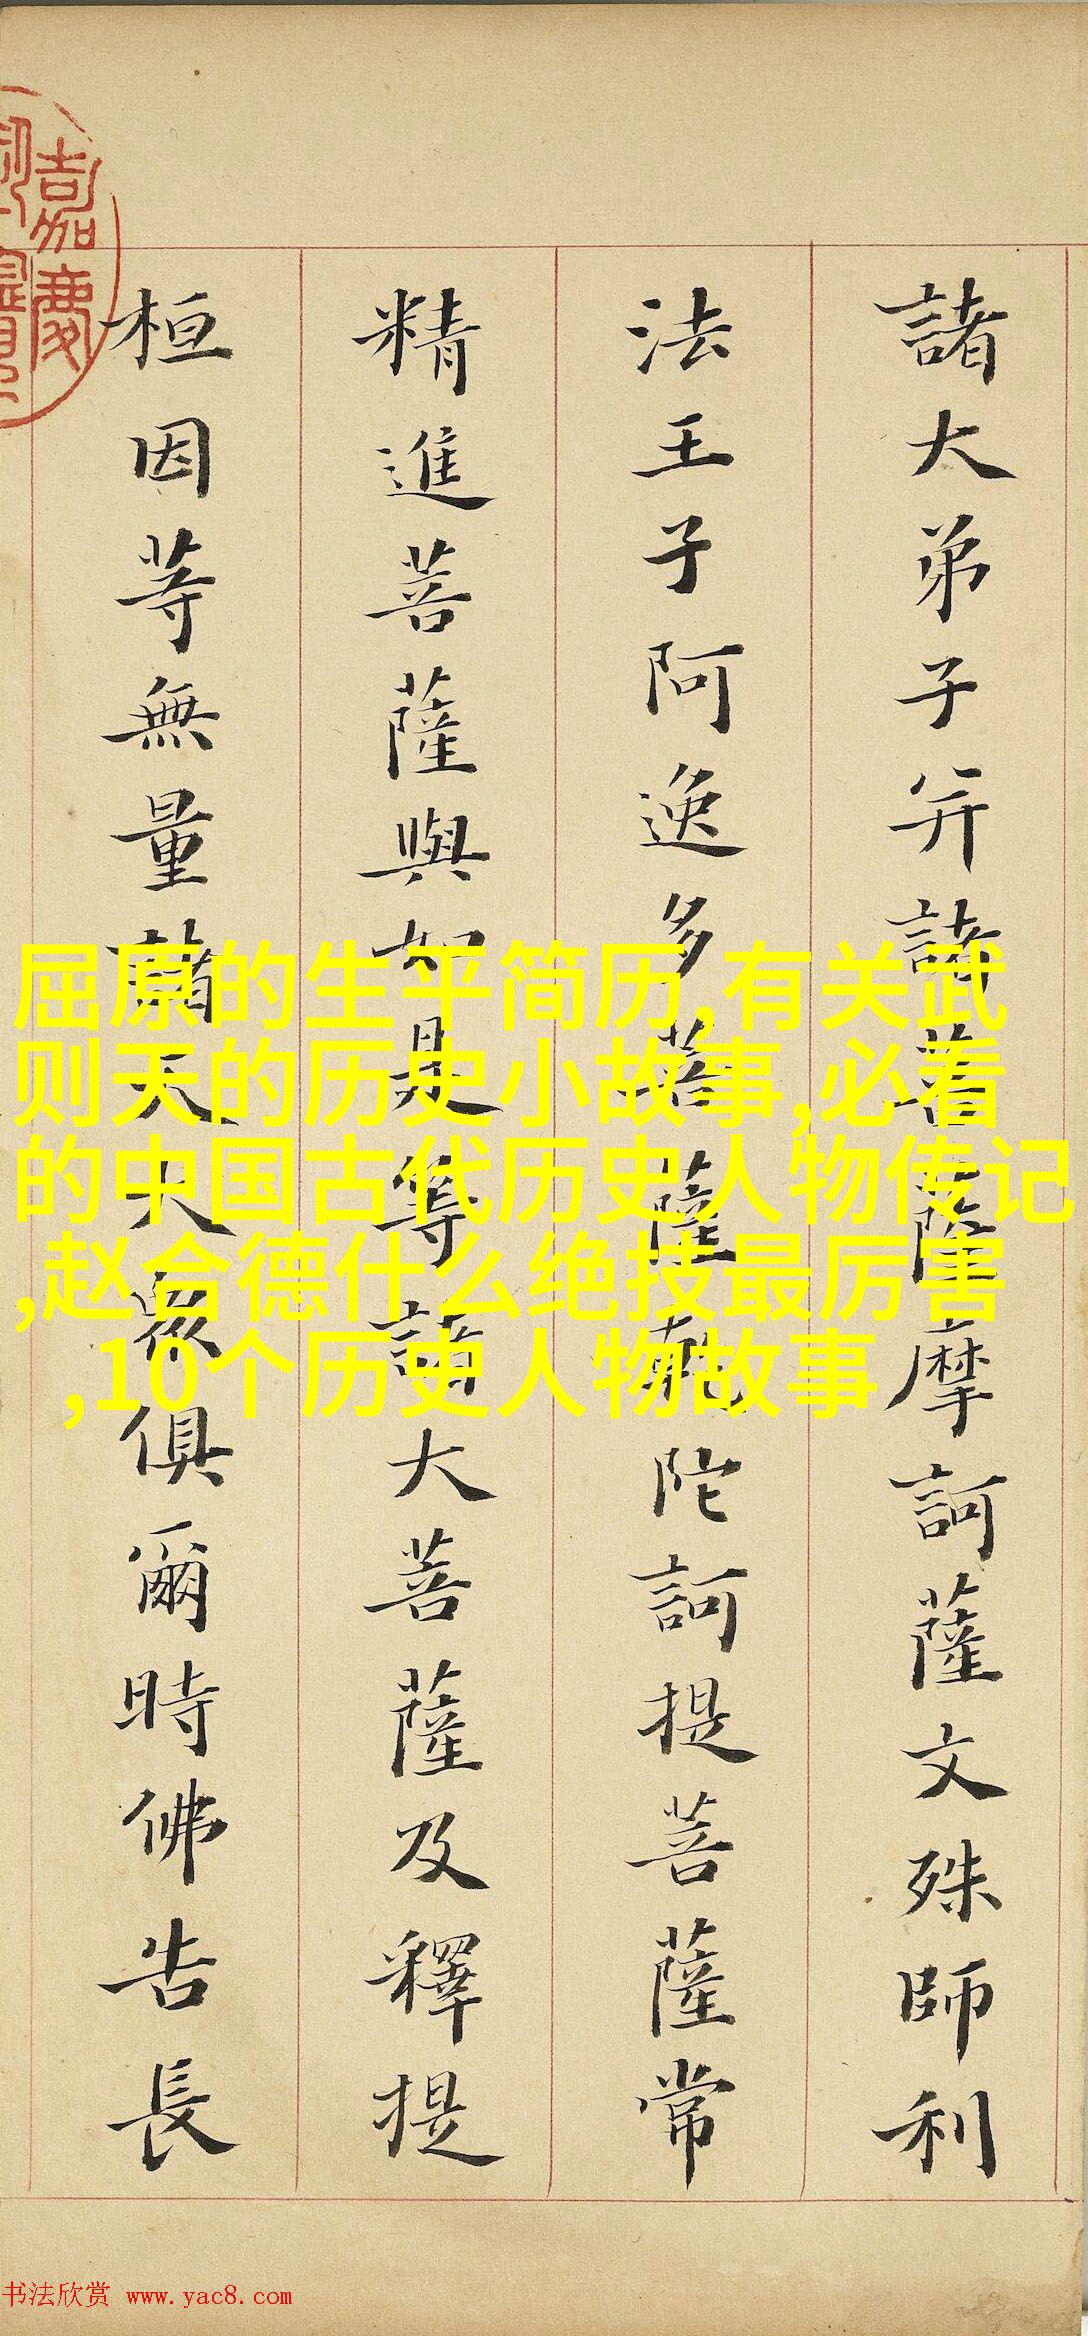 諸大弟子并諸菩薩摩訶薩文殊師利
法王子阿逸多菩薩乾陀訶提菩薩常
精進菩薩與如是等諸大菩薩及釋提
桓因等無量諸天大衆俱爾時佛告長
嘉慶
屈原的生平简历,有关武
则天的历史小故事,必看
的中国古代历史人物传记
,赵合德什么绝技最厉害
,10个历史人物故事
书法欣赏 www.yac8.com